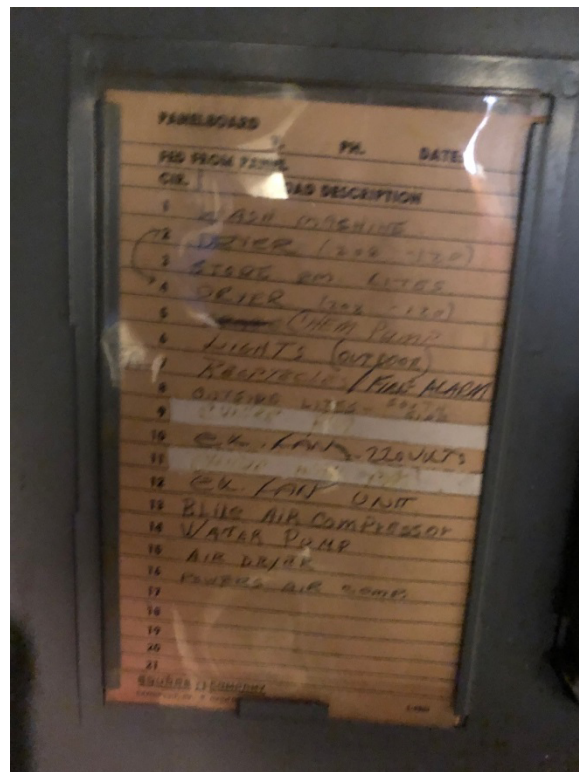 PANELBOARD
PH. DATE
FED FROM PANEL
CIR. LOAD DESCRIPTION
1 WASH MACHINE
2 DRYER (208 - 120)
3 STORE RM LITES
4 DRIER (208 - 120)
5 CHEM PUMP
6 LIGHTS (OUTDOOR)
7 RECPTACLES / FIRE ALARM
8 OUTSIDE LITES -
9
10 EX. FAN 220 VOLTS
11
12 EX. FAN UNIT
13 BLUE AIR COMPRESSOR
14 WATAR PUMP
15 AIR DRYER
16 POWERS AIR COMP.
17
18
19
20
21
SQUARE D COMPANY